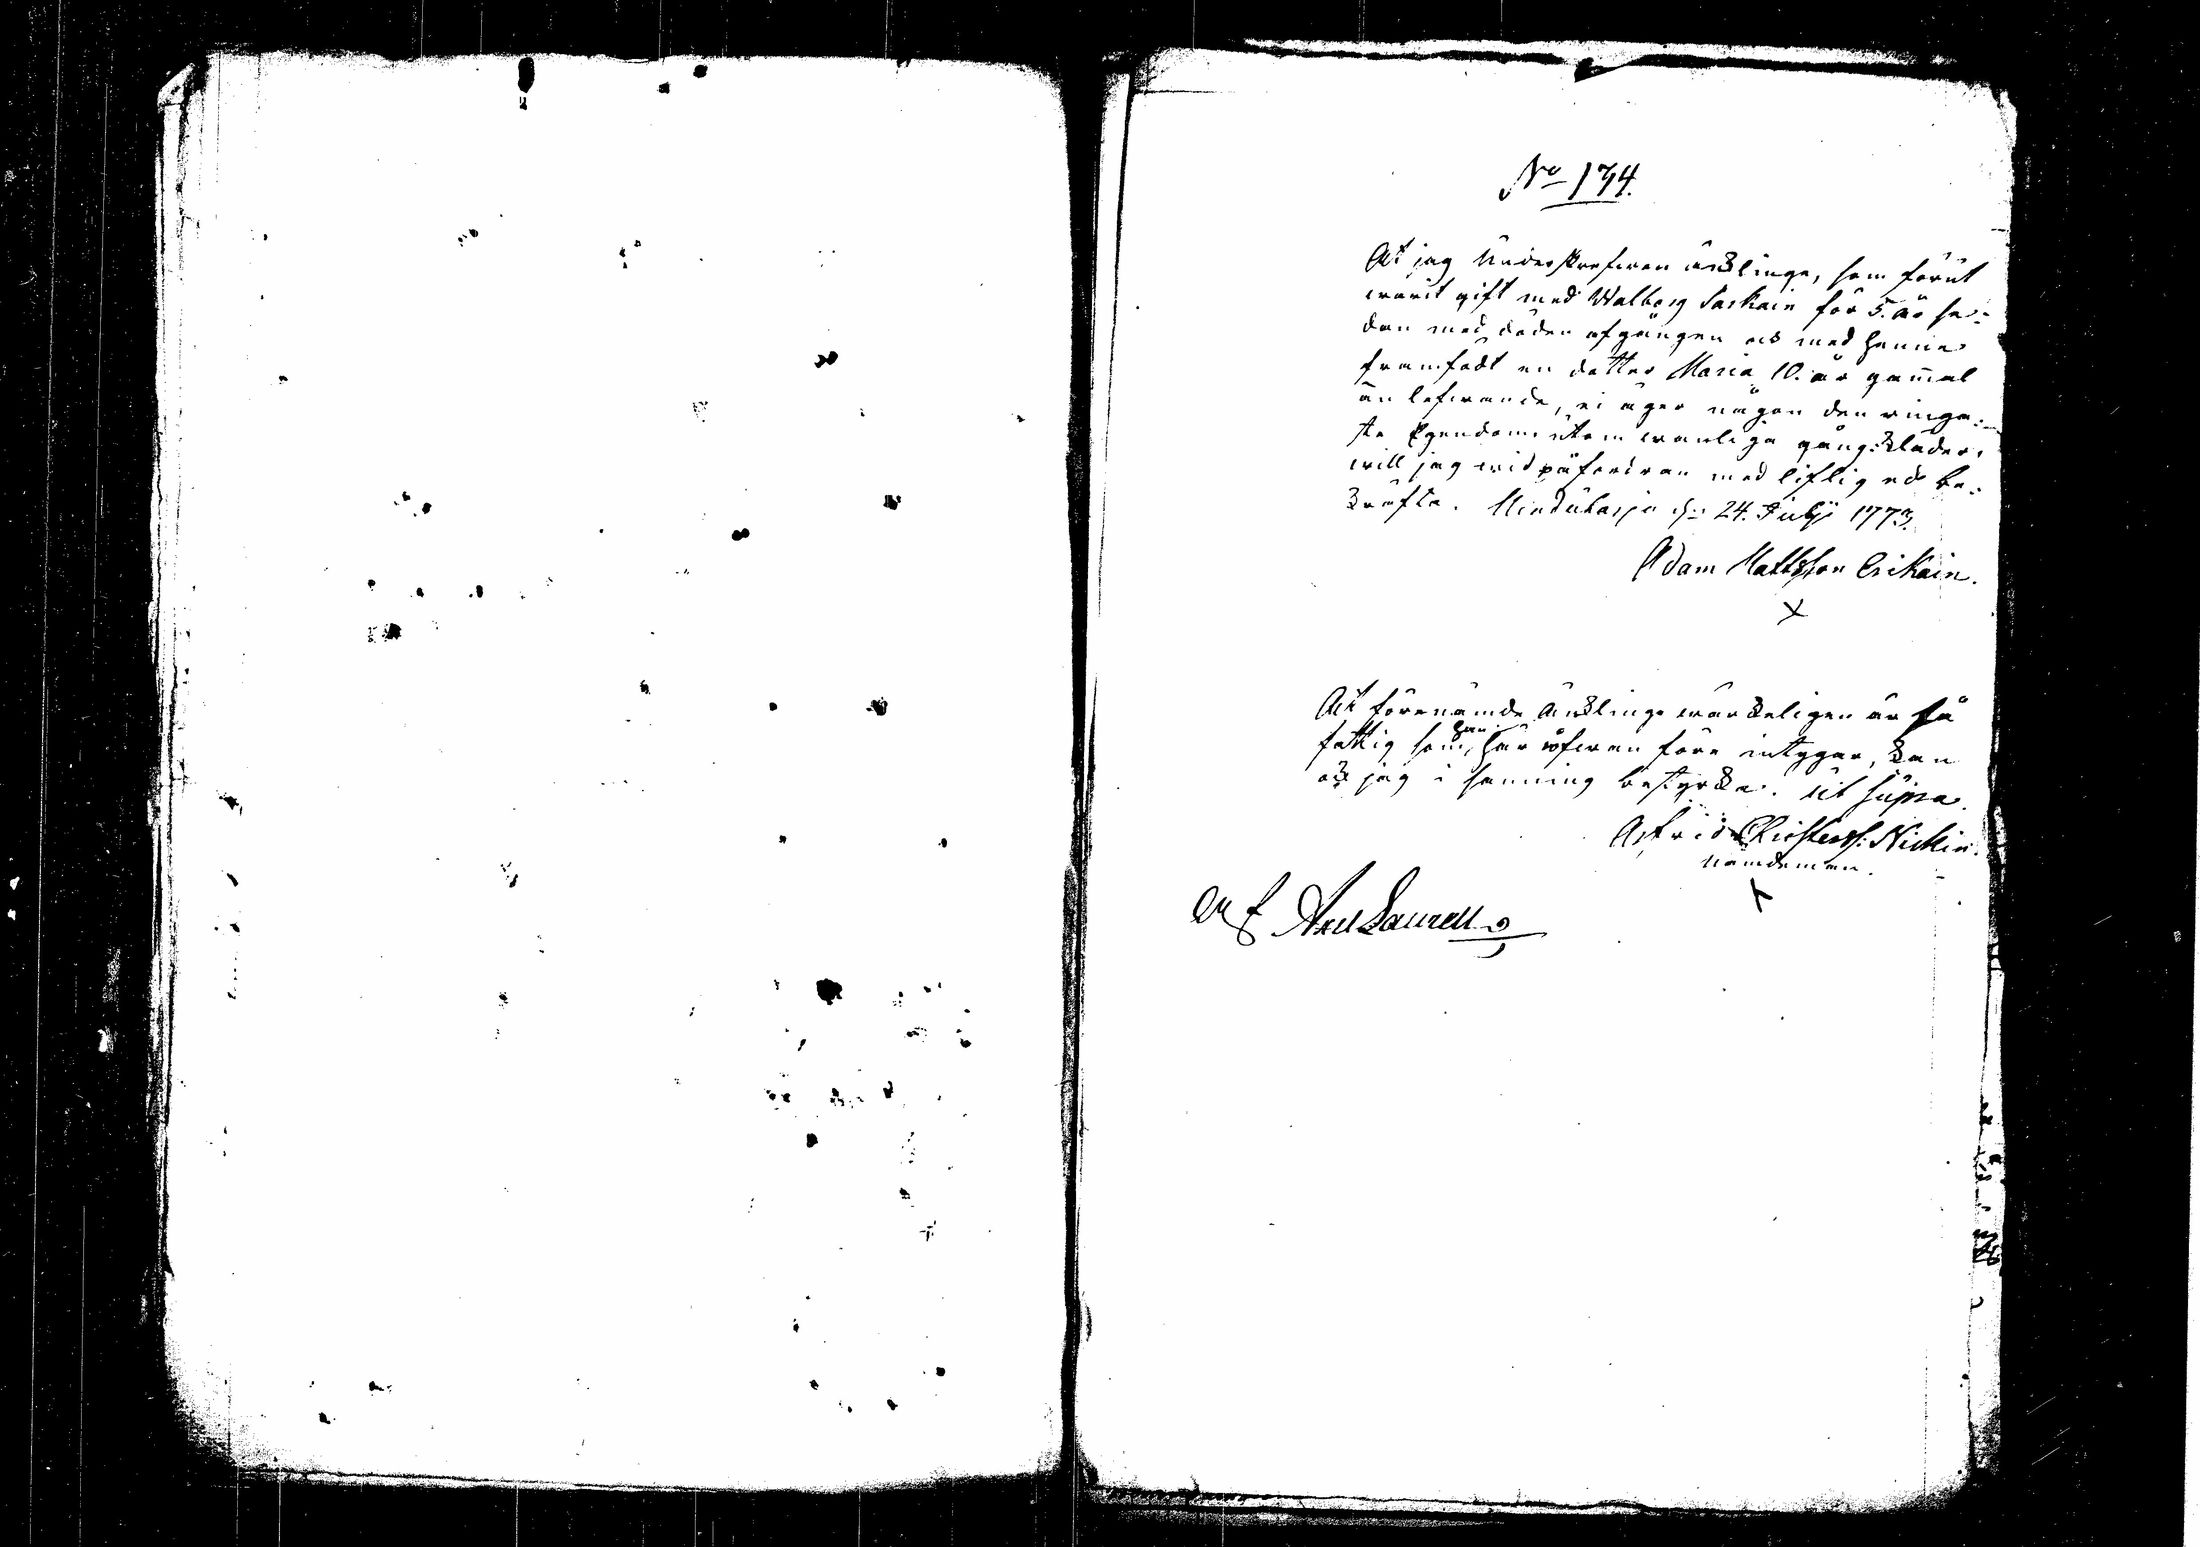 No 174.
At jag Underskrefwen änklinge, som förut
warit gift med Walborg Saskain för 5. år se-
dan med döden afgången ock med henne
framfödt en dotter Maria 10. år gam̄al
än lefwande, ei äger någon den ringa-
ste Egendom utom wanliga gångkläder,
will jag wid påfordran med liflig ed be-
kräfta. d: 24. Julÿ 1773.
Adam Mattsson Erikain.
X
At förenämde Änklinge wärkeligen är så
fattig som han här ofwan före intygar, kan
ock jag i sanning bestyrka. Ut supra.
Christerss: Nickin.
Nämdeman.
X
Axel Laurell